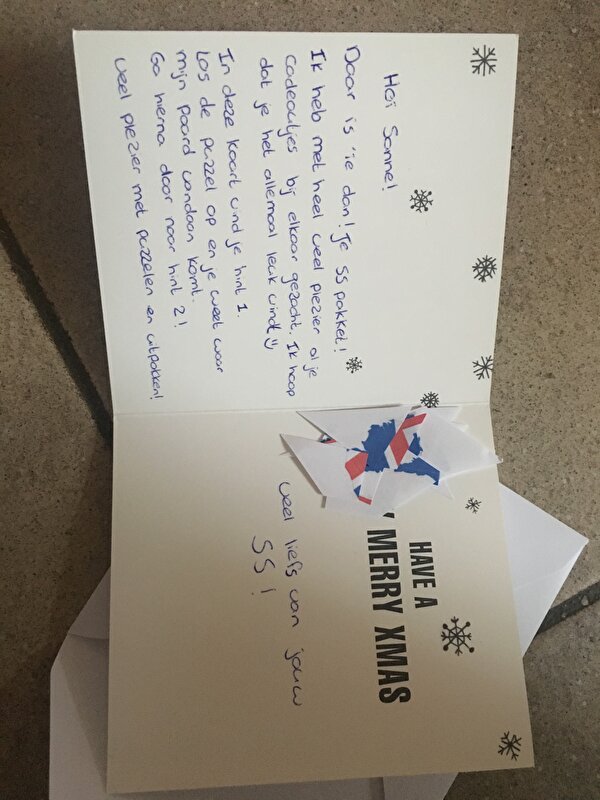 Hoi Sanne!
Daar is 'ie dan! Je SS pakket!
Ik heb met heel veel plezier al je
cadeautjes bij elkaar gezocht. Ik hoop
dat je het allemaal leuk vindt
In deze kaart vind je hint 1.
Los de puzzel op en je weet waar
mijn paard vandaan komt.
Ga hierna door naar hint 2!
veel plezier met puzzelen en uitpakken!
HAVE A
MERRY XMAS
veel liefs van jouw
SS!